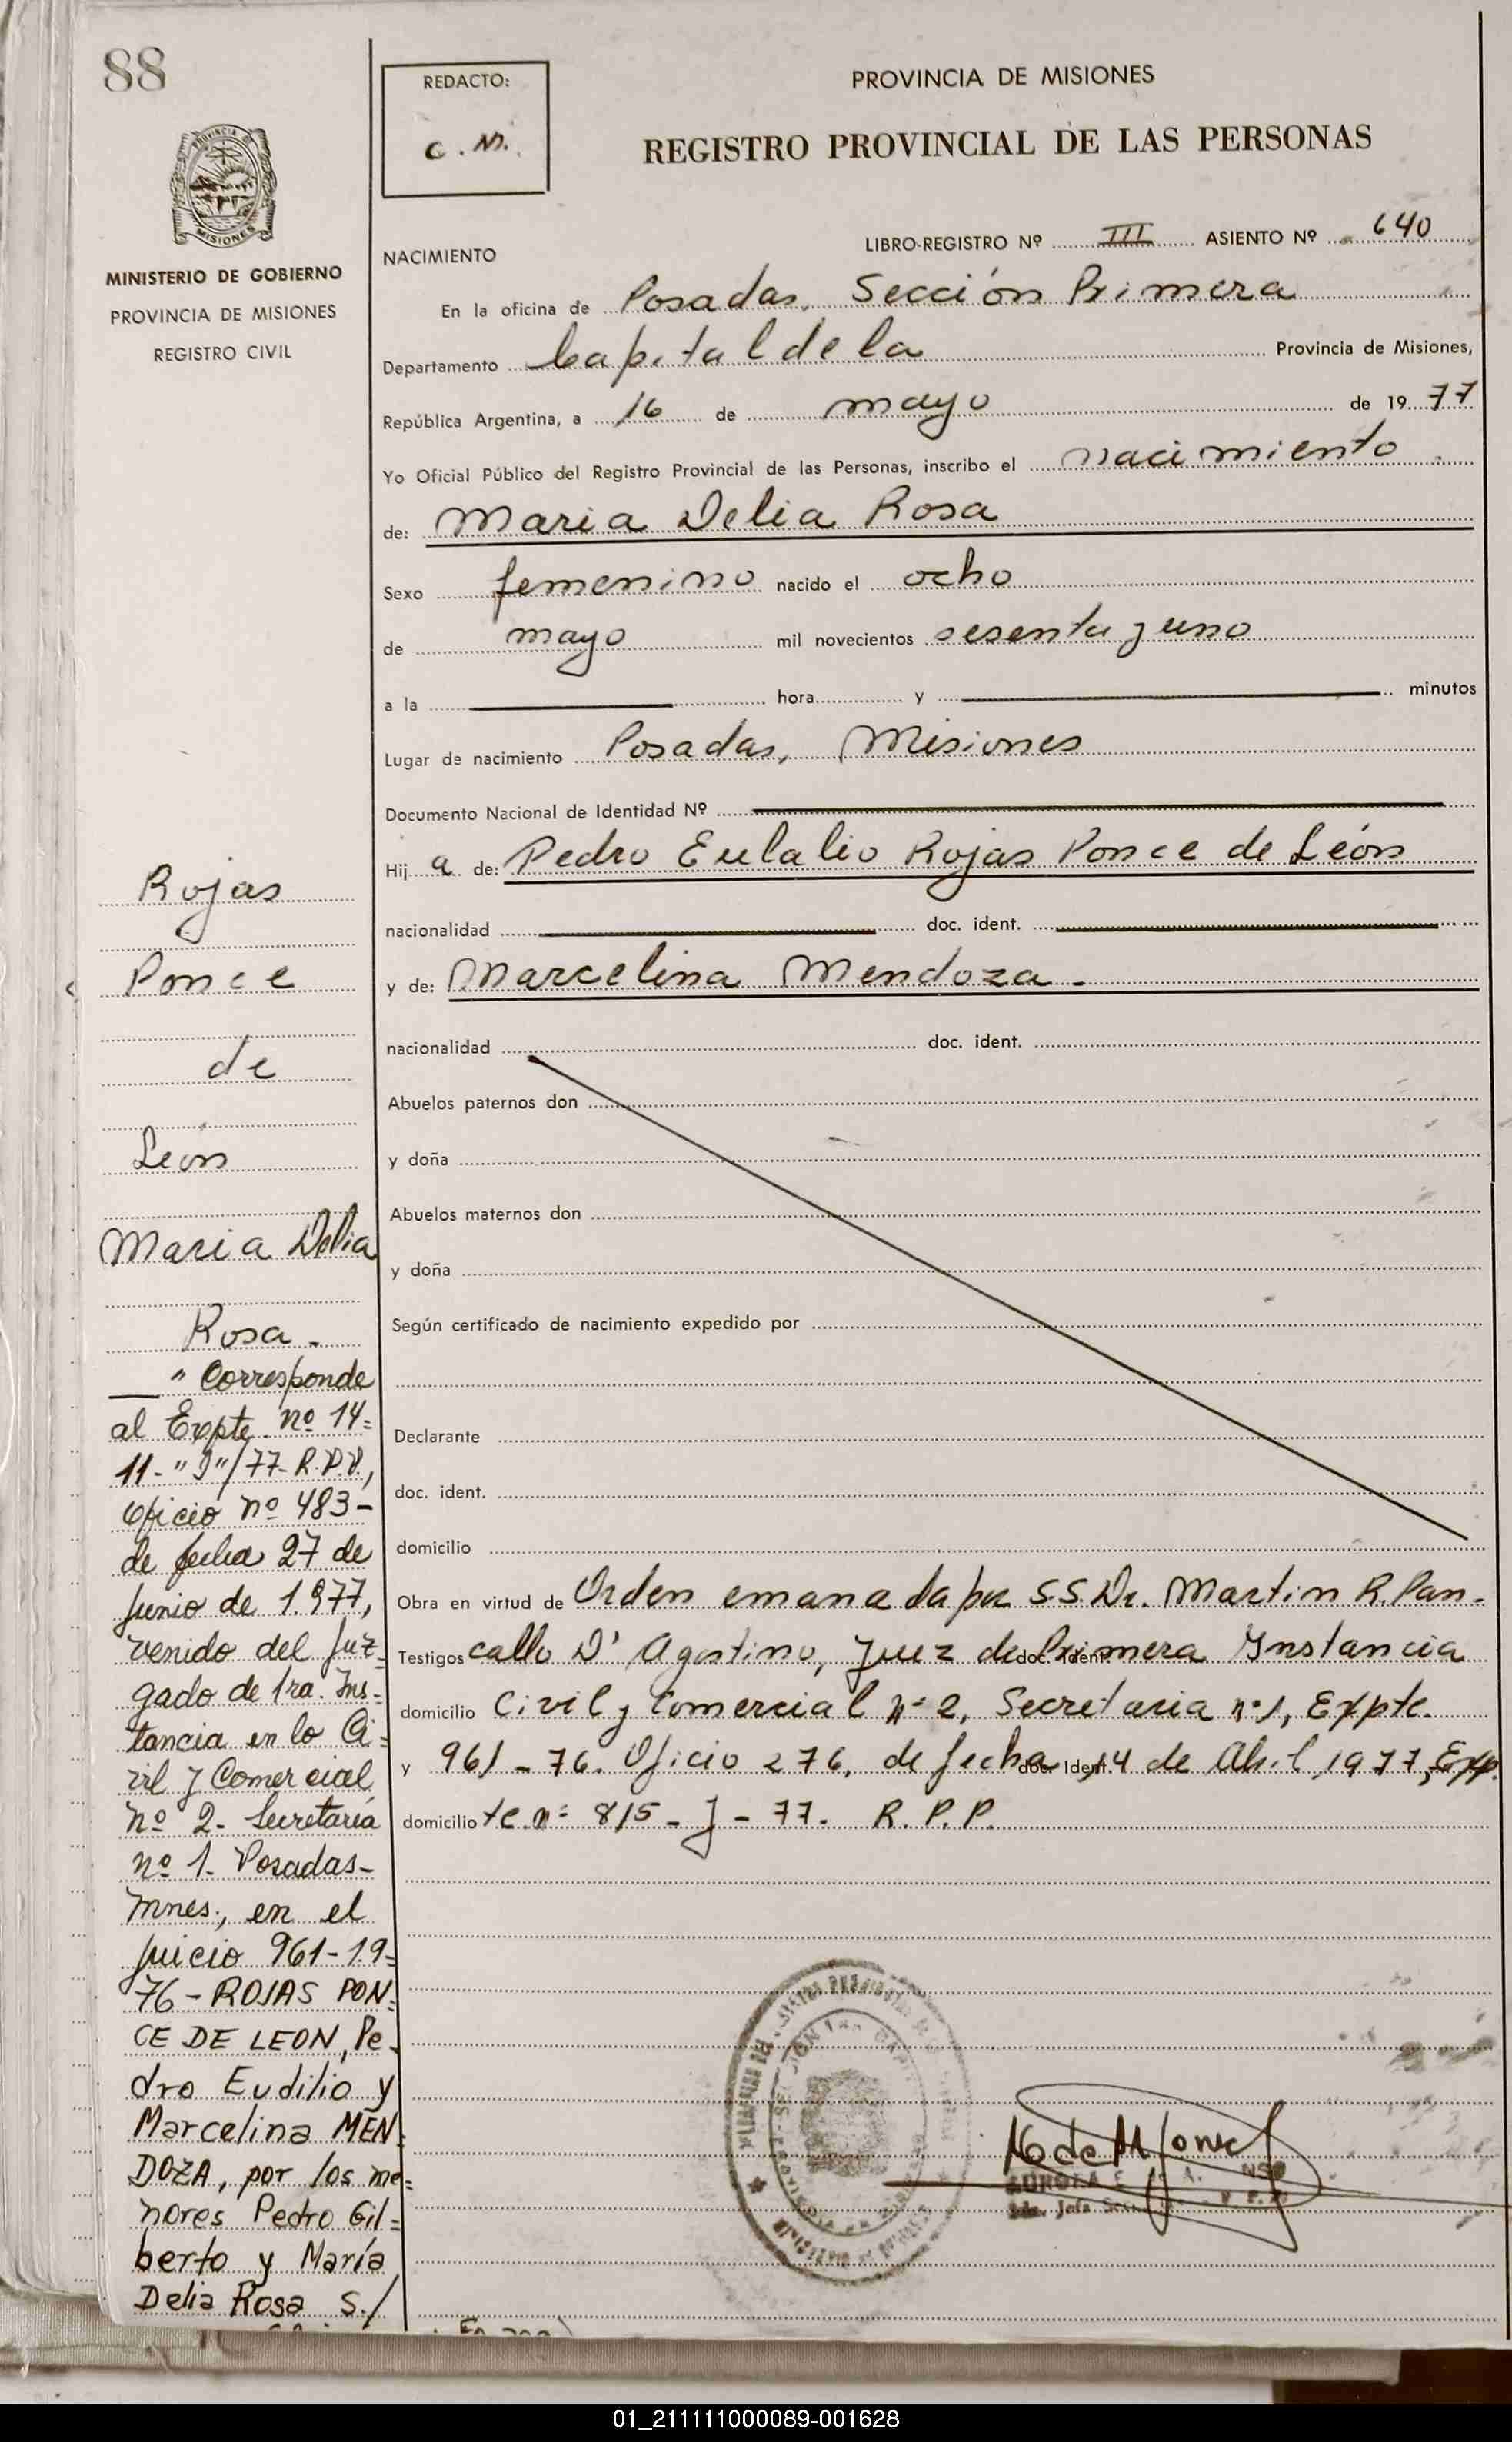 88
REDACTO:
C. M.
PROVINCIA DE MISIONES
REGISTRO PROVINCIAL DE LAS PERSONAS
MISIONES
MINISTERIO DE GOBIERNO
PROVINCIA DE MISIONES
REGISTRO CIVIL
LIBRO-REGISTRO Nº III ASIENTO Nº 640
NACIMIENTO
En la oficina de Posadas, Sección Primera
Departamento Capital de la Provincia de Misiones,
República Argentina, a 16 de mayo de 1977
Yo Oficial Público del Registro Provincial de las Personas, inscribo el nacimiento
de: Maria Delia Rosa
Sexo femenino nacido el ocho
de mayo mil novecientos sesenta y uno
a la hora y minutos
Lugar de nacimiento Posadas, Misiones
Documento Nacional de Identidad Nº
Hij a de: Pedro Eulalio Rojas Ponce de León
nacionalidad doc. ident.
y de: Marcelina Mendoza.-
nacionalidad doc. ident.
Abuelos paternos don
y doña
Abuelos maternos don
y doña
Según certificado de nacimiento expedido por
Declarante
doc. ident.
domicilio
Obra en virtud de Orden emanada por S.S. Dr. Martin R. Pan-
Testigos callo D' Agostino, Juez de Primera Instancia
domicilio Civil y Comercial nº 2, Secretaria nº 1, Expte.
y 961-76. Oficio 276, de fecha 14 de Abril, 1977, Exp.
domicilio te. nº 815-J-77. R.P.P.
Rojas
Ponce
de
León
Maria Delia
Rosa.-
" Corresponde
al Expte. nº 14=
11-"J"/77-R.P.P.,
Oficio nº 483-
de fecha 27 de
junio de 1.977,
venido del Juz-
gado de 1ra. Ins=
tancia en lo Ci=
vil y Comercial
nº 2- Secretaría
nº 1- Posadas-
Mnes., en el
juicio 961-19=
76-ROJAS PON=
CE DE LEON, Pe-
dro Eudilio y
Marcelina MEN=
DOZA, por los me=
nores Pedro Gil=
berto y María
Delia Rosa S./
01_211111000089-001628